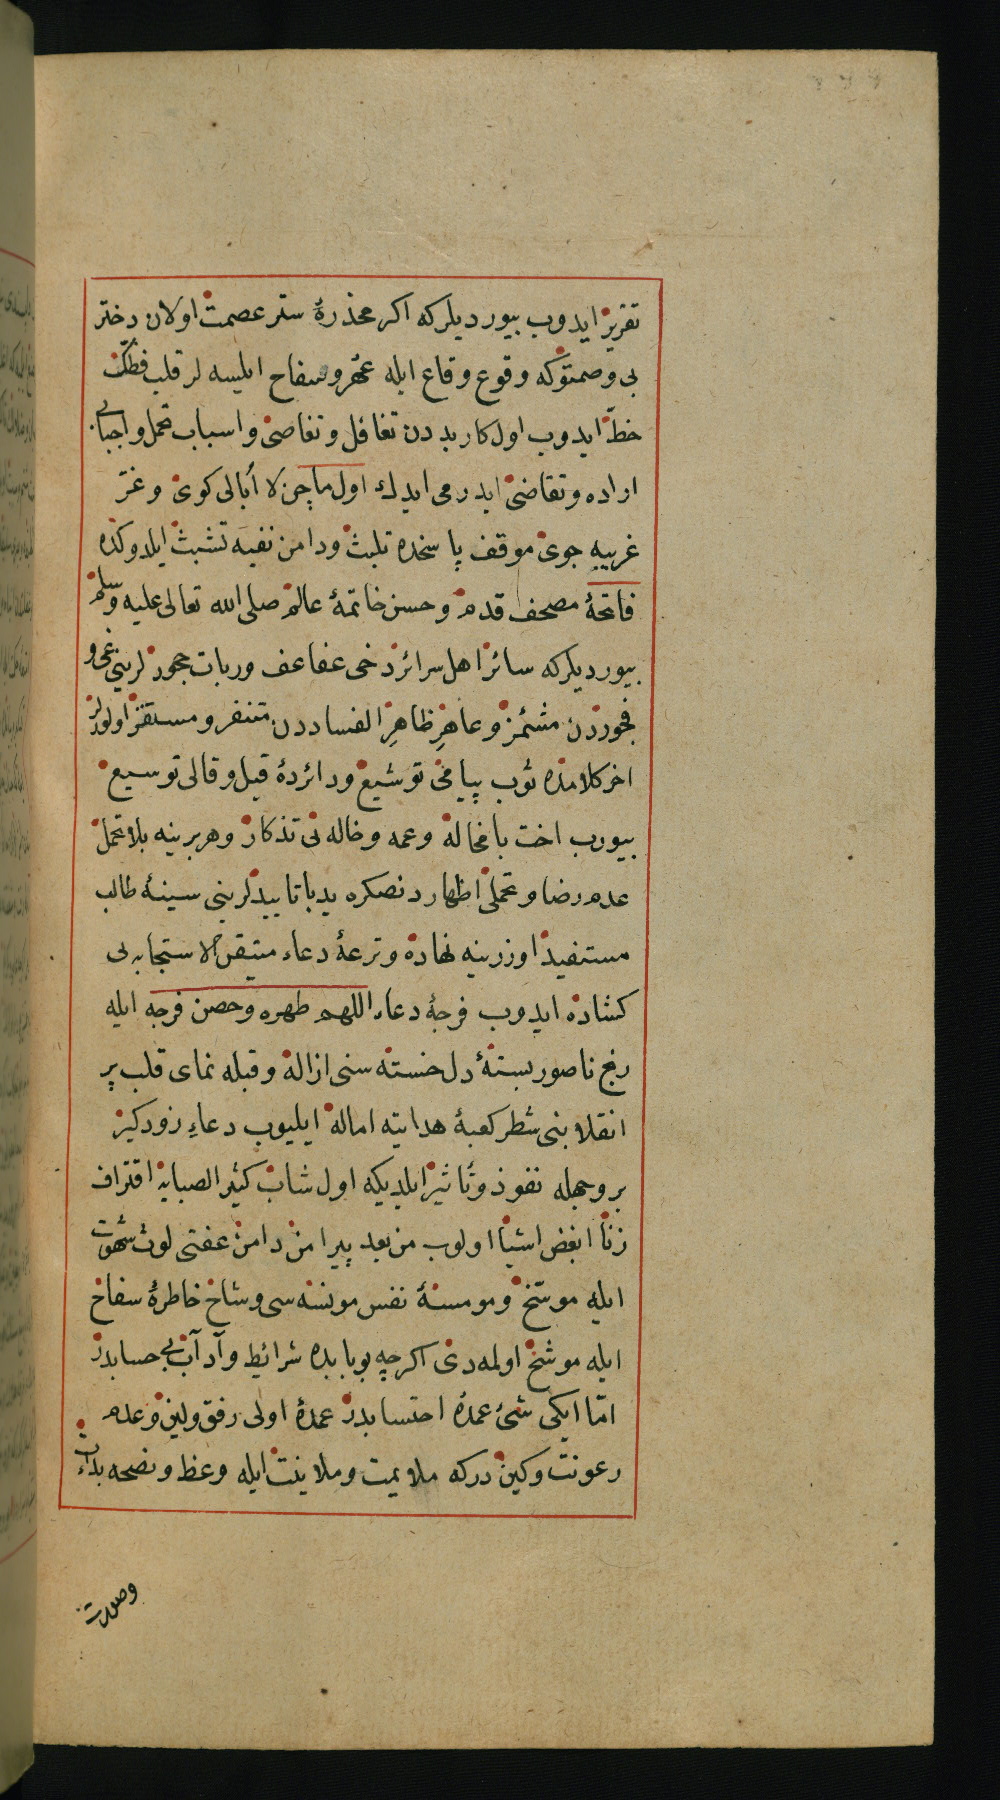 تقریر ایدوب بیوردیلر که اکر مخذرهٔ ستر عصمت اولان دختر
بی وصمتوکه وقوع وقاع ایله عهر و سفاح ایلیسه لر قلب فطنک
خط ایدوب اول کاربددن تغافل و تغاضی و اسباب تحمل و اجتبایی
اراده و تقاضی ایدرمی ایدک اول ماجن لا أبالی کوی و غر
غریبه جوی موقف پاسخده تلبث و دامن نفیه تشبث ایلدوکده
فاتحهٔ مصحف قدم و حسن خاتمهٔ عالم صلی الله تعالی علیه وسلم
بیوردیلر که سائر اهل سرائر دخی عفاعف و ربات حجور لرینی غی و
فجوردن مشمئز و عاهر ظاهر الفساددن متنفر و مستقز اولورلر
اخر کلامنده ثوب پیامی توشیع و دائرهٔ قیل و قالی توسیع
بیورب اخت بامخاله و عمه و خاله نی تذکار و هر برینه بلا تحمل
عدم رضا و تحملی اظهاردنصکره ید باتاییدلرینی سینهٔ طالب
مستفید اوزرینه نهاده و ترعهٔ دعاء متیقن الاستجابه لی
کشاده ایدوب فرجهٔ دعاء اللهم طهره وحصن فرجه ایله
رنج ناصور بستهٔ دل خسته سنی ازاله و قبله نمای قلب پر
انقلابنی شطر کعبهٔ هدایته اماله ایلیوب دعاء زودکیر
بر وجهله نفوذ و تاثیر ایلدیکه اول شاب کثیر الصبابه اقتراف
زنا ابغض اشیا اولوب من بعد پیرامن دامن عفتی لوث شهوت
ایله موسخ و مومسهٔ نفس مونسه سی وشاخ خاطرهٔ سفاح
ایله موشخ اولمه دی اکرچه بو بابده شرائط و آداب بی حسابدر
اما ایکی شئ عمدهٔ احتسابدر عمدهٔ اولی رفق ولین و عدم
رعونت و کین در که ملایمت و ملاینت ایله وعظ و نصحه بداء
وصورت